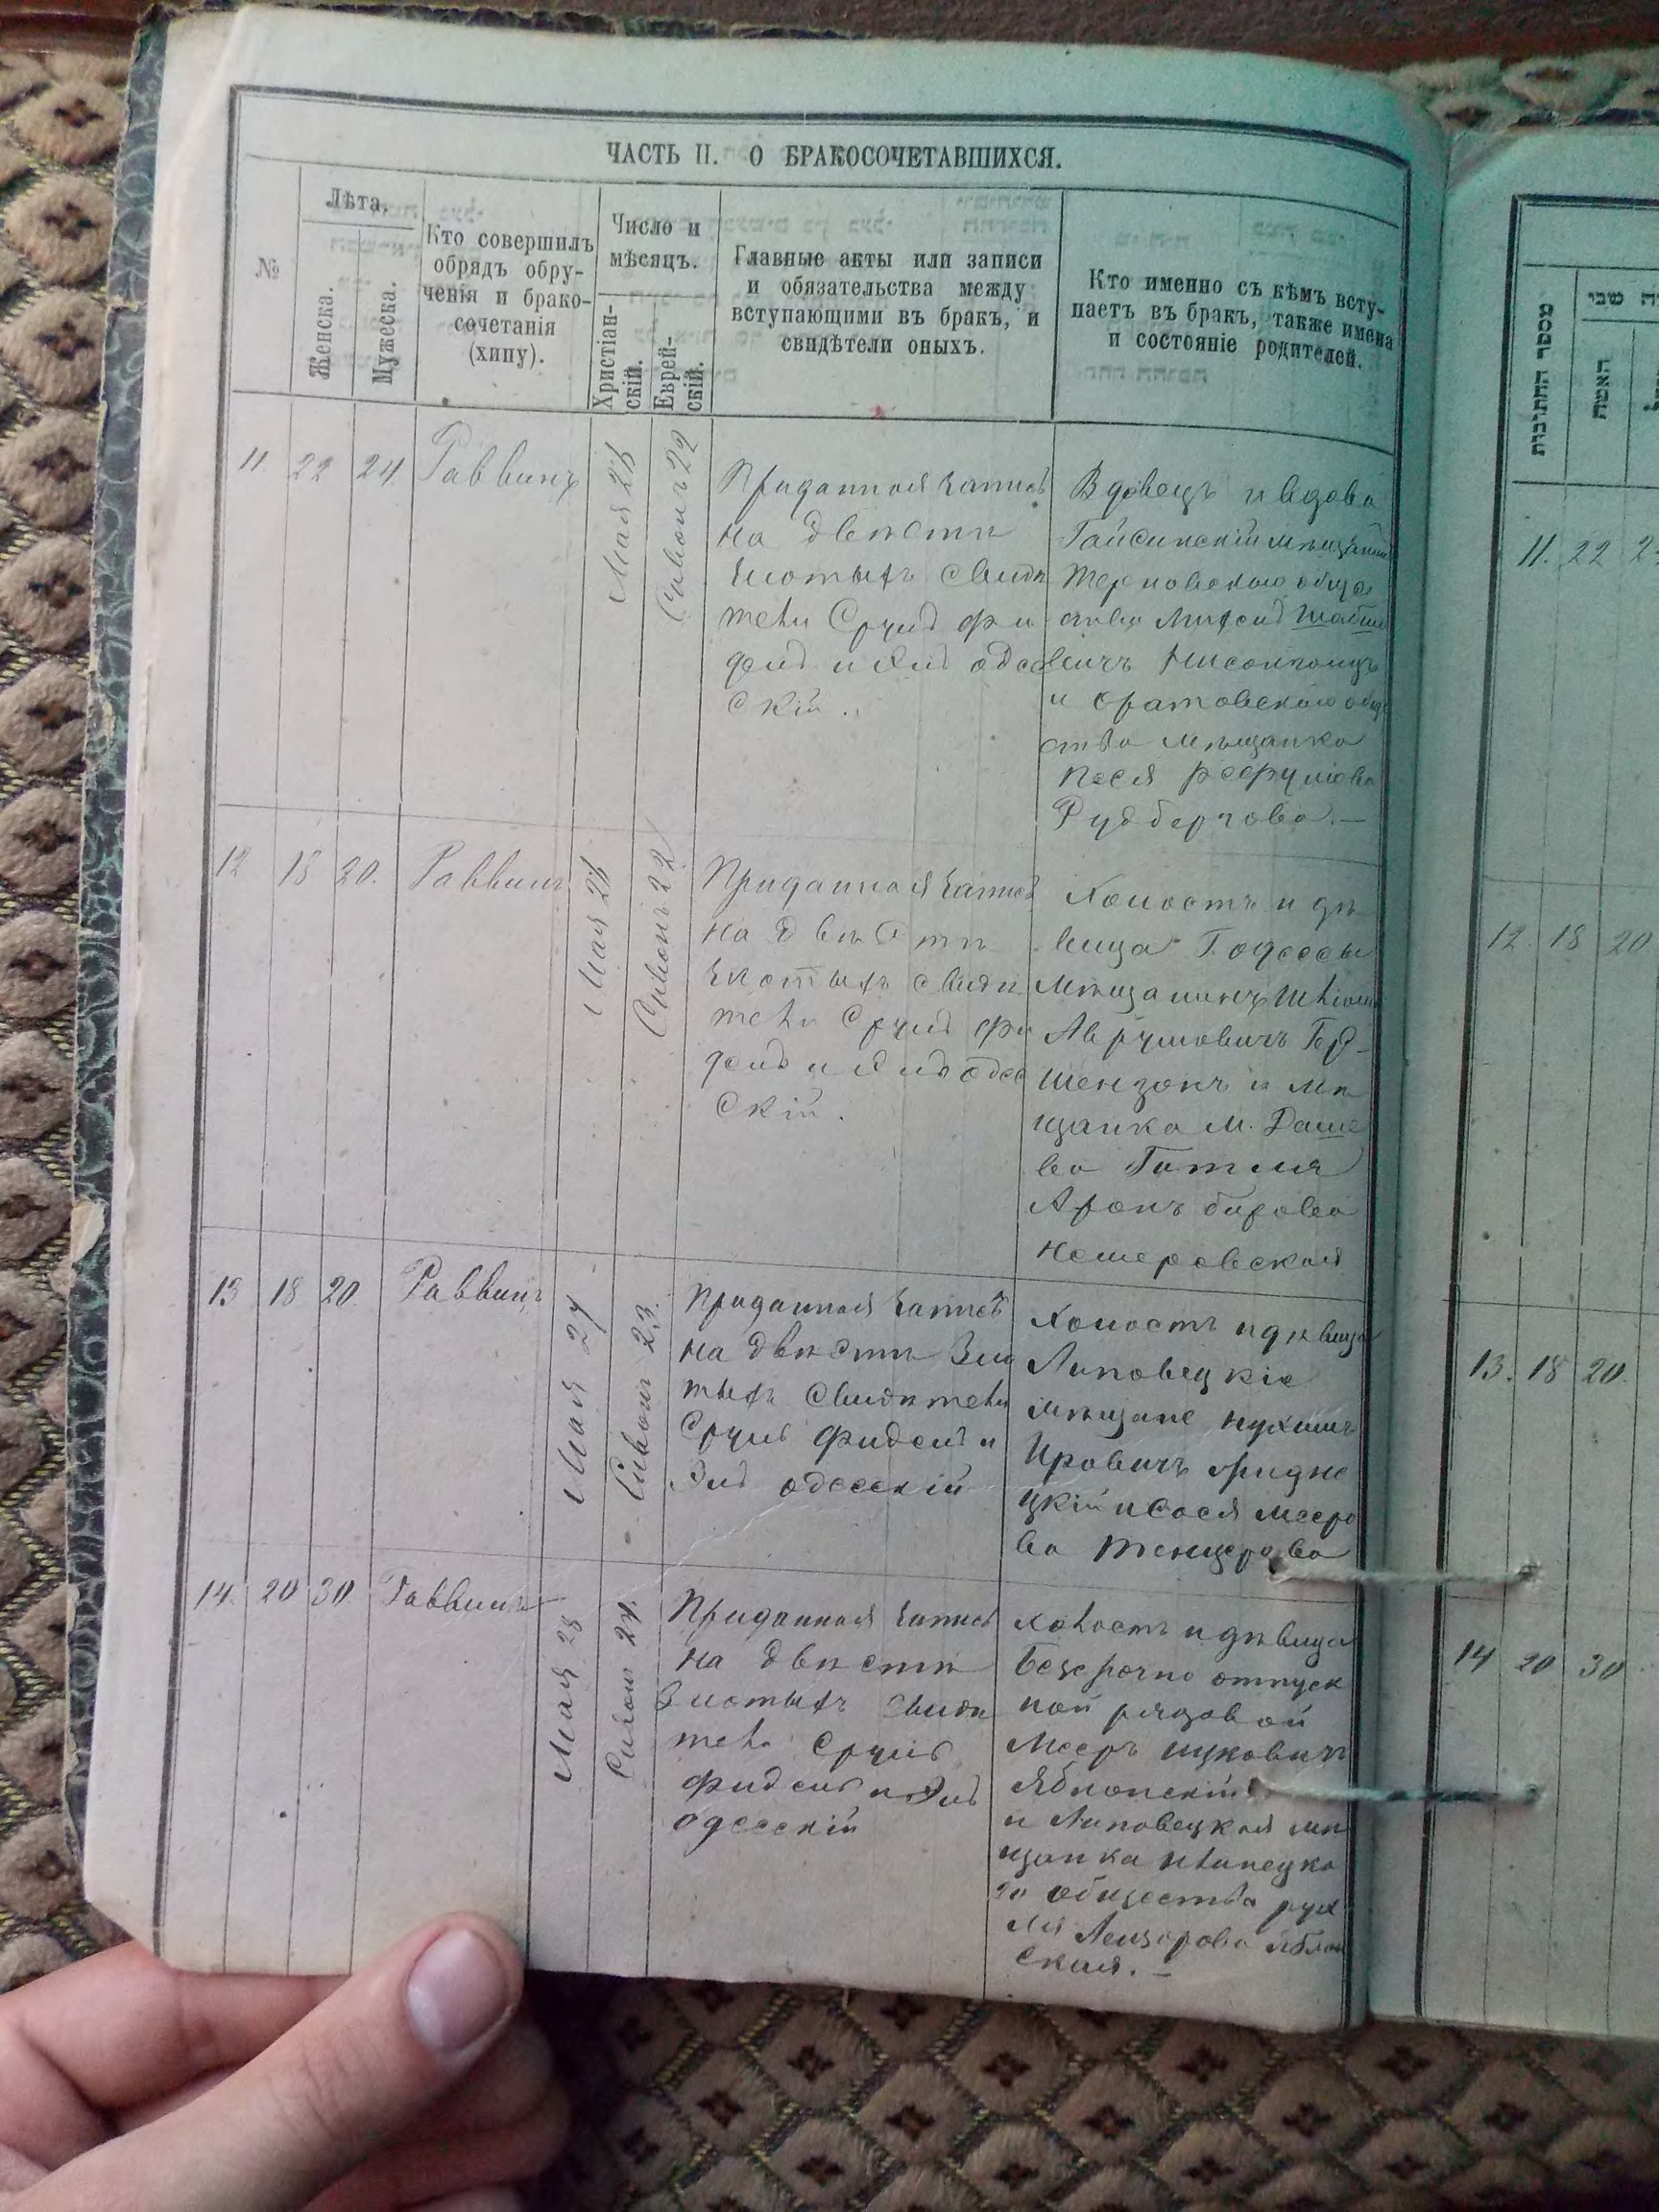 ЧАСТЬ II. О БРАКОСОЧЕТАВШИХСЯ.
№
Лѣта.
Женска.
Мужеска.
Кто совершилъ
обрядъ обру-
ченія и брако-
сочетанія
(хипу).
Число и
мѣсяцъ.
Христіан-
скій.
Еврей-
скій.
Главные акты или записи
и обязательства между
вступающими въ бракъ, и
свидѣтели оныхъ.
Кто именно съ кѣмъ всту-
паетъ въ бракъ, также имена
и состояніе родителей.
11 22 24 Раввинъ
Мая 26
Сивонъ 22
Приданная запись
на двѣсти
злотыхъ свидѣ
тели Сруль Фи
дель и Эль Одес
скій.
Вдовецъ и вдова
Гайсинскій мѣщанин
Терновского обще
ства
и
ства мѣщанка
Песя
12 18 20. Раввинъ
Мая 26
Сивонъ 22
Приданная запись
на двѣсти
злотыхъ свидѣ
тели Сруль Фи
дель и Эль Одес
скій.
Холостъ и дѣ
вица Г. Одессы
мѣщанинъ
Аврумовичъ Гер-
шензонъ и мѣ
щанка м. Даше
ва Гитля
Аронъ Берова
13 18 20. Раввинъ
Мая 27
Сивонъ 23.
Приданная запись
на двѣсти зло
тыхъ свидѣтели
Сруль Фидель и
Эль Одесскій
Холостъ и дѣвица
Липовецкіе
мѣщане Нухимъ
цкій и Сося Мееро
ва Тенцерова
14. 20 30. Раввинъ
Мая 28
Сивонъ 24.
Приданная запись
на двѣсти
злотыхъ свидѣ
тели Сруль
Фидель и Эль
Одесскій
Холостъ и дѣвица
безсрочно отпуск
ной рядовой
Мееръ Ицковичъ
Яблонскій
и Липовецкая мѣ
щанка Илинецка
го общества Рух
ля Лейзерова Яблон
ская. —
מספר החתונות
האשה
11. 22
12. 18 20
13. 18 20.
14 20 30